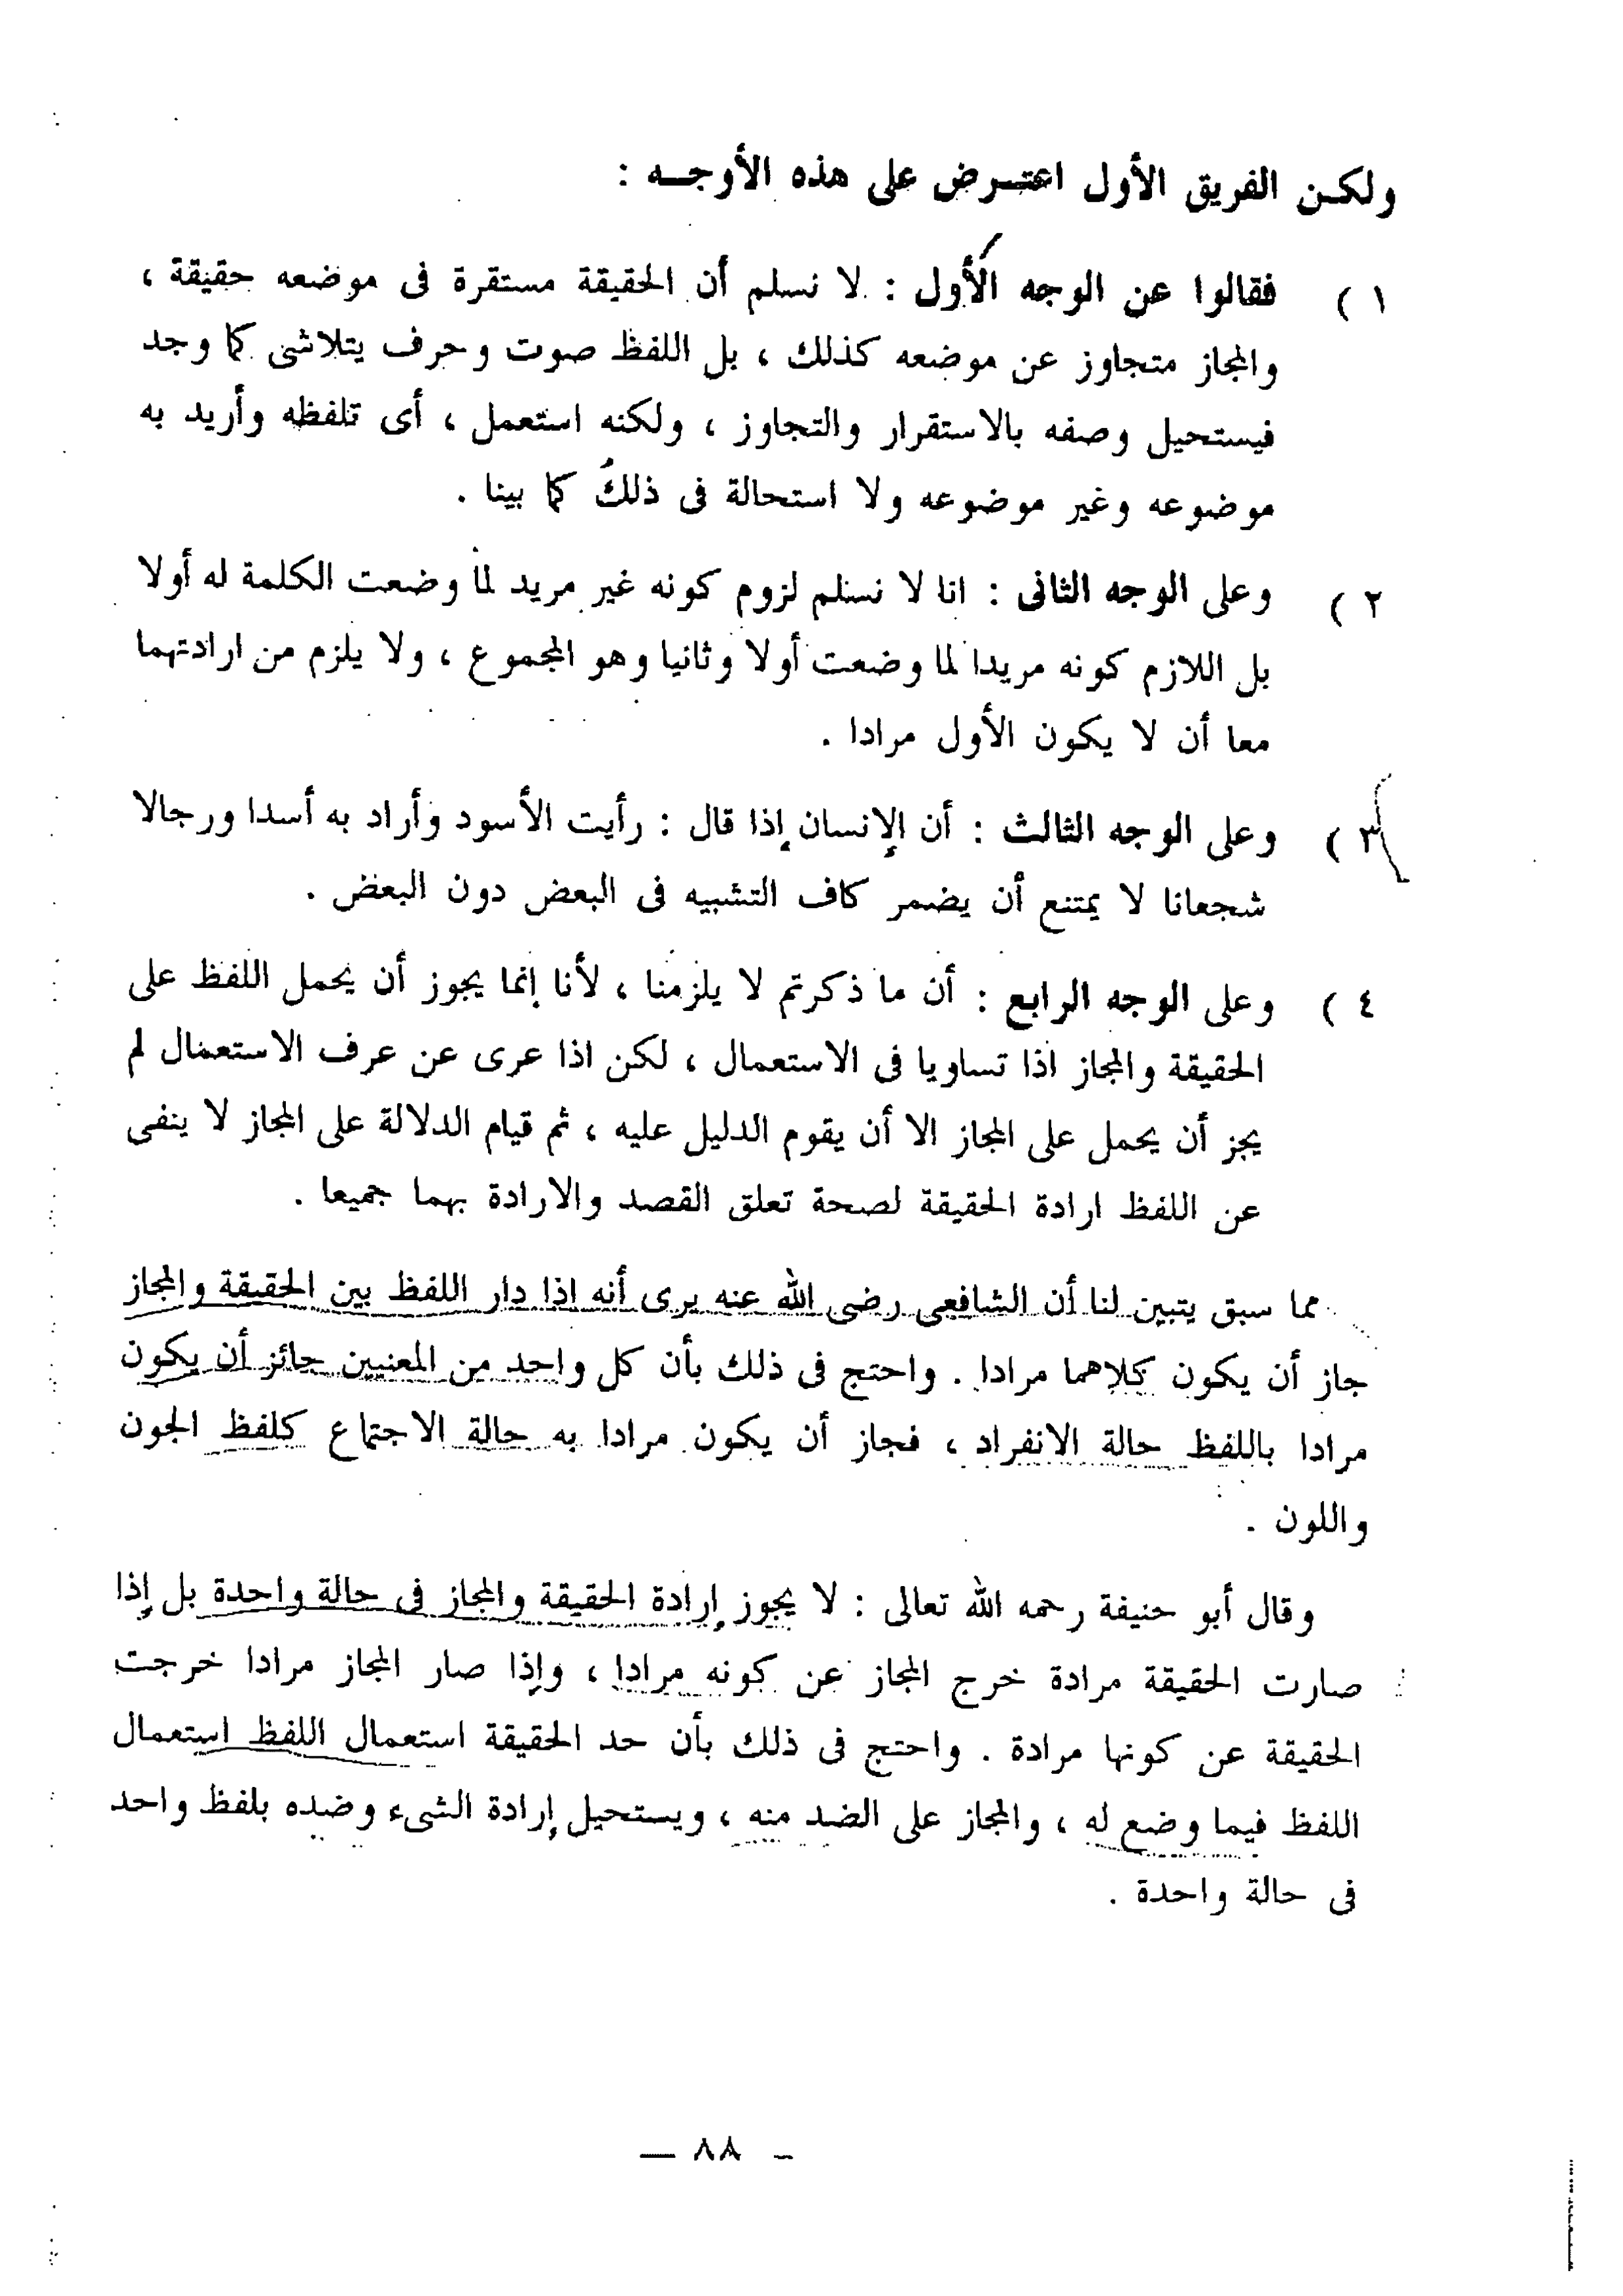 ولكن الفريق الأول اعترض على هذه الأوجه :
١ ) فقالوا عن الوجه الأول : لا نسلم أن الحقيقة مستقرة فى موضعه حقيقة ،
والمجاز متجاوز عن موضعه كذلك ، بل اللفظ صوت وحرف يتلاشى كما وجد
فيستحيل وصفه بالاستقرار والتجاوز ، ولكنه استعمل ، أى تلفظه وأريد به
موضوعه وغير موضوعه ولا استحالة فى ذلك كما بينا .
٢ ) وعلى الوجه الثانى : انا لا نسلم لزوم كونه غير مريد لما وضعت الكلمة له أولا
بل اللازم كونه مريدا لما وضعت أولا وثانيا وهو المجموع ، ولا يلزم من ارادتهما
معا أن لا يكون الأول مرادا .
٣ ) وعلى الوجه الثالث : أن الإنسان إذا قال : رأيت الأسود وأراد به أسدا ورجالا
شجعانا لا يمتنع أن يضمر كاف التشبيه فى البعض دون البعض .
٤ ) وعلى الوجه الرابع : أن ما ذكرتم لا يلزمنا ، لأنا إنما يجوز أن يحمل اللفظ على
الحقيقة والمجاز اذا تساويا فى الاستعمال ، لكن اذا عرى عن عرف الاستعمال لم
يجز أن يحمل على المجاز الا أن يقوم الدليل عليه ، ثم قيام الدلالة على المجاز لا ينفى
عن اللفظ ارادة الحقيقة لصحة تعلق القصد والارادة بهما جميعا .
مما سبق يتبين لنا أن الشافعى رضى الله عنه يرى أنه اذا دار اللفظ بين الحقيقة والمجاز
جاز أن يكون كلاهما مرادا . واحتج فى ذلك بأن كل واحد من المعنيين جائز أن يكون
مرادا باللفظ حالة الانفراد ، فجاز أن يكون مرادا به حالة الاجتماع كلفظ الجون
واللون .
وقال أبو حنيفة رحمه الله تعالى : لا يجوز إرادة الحقيقة والمجاز فى حالة واحدة بل إذا
صارت الحقيقة مرادة خرج المجاز عن كونه مرادا ، وإذا صار المجاز مرادا خرجت
الحقيقة عن كونها مرادة . واحتج فى ذلك بأن حد الحقيقة استعمال اللفظ استعمال
اللفظ فيما وضع له ، والمجاز على الضد منه ، ويستحيل إرادة الشىء وضده بلفظ واحد
فى حالة واحدة .
- ٨٨ —